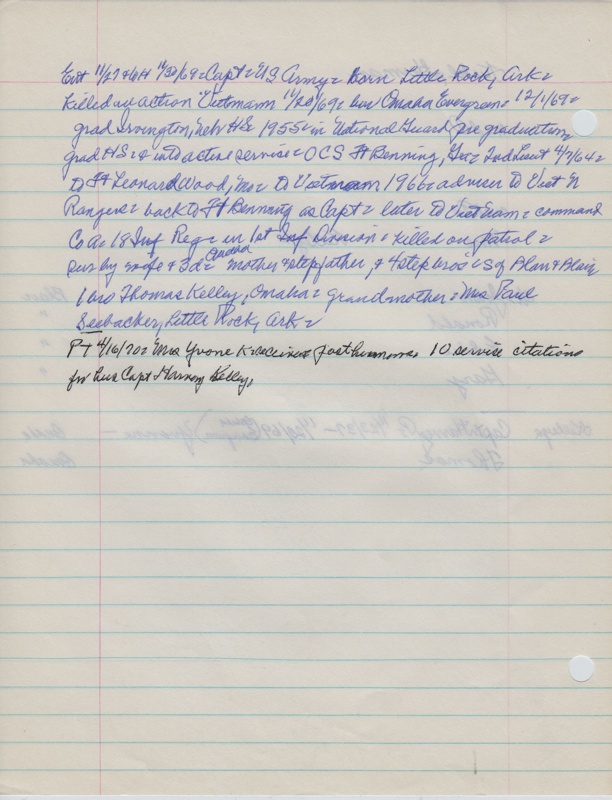 Ent 11/27 & 6H 11/30/69 = Capt = US Army = Born Little Rock, Ark =
Killed in action Vietnam 11/20/69 = bur Omaha Evergreen = 12/1/69 =
grad Irvington, Nebr HS 1955 = in National Guard pre graduation,
grad HS = & into active service = OCS Ft Benning, Ga = 2nd Lieut 4/7/64 =
to Ft Leonard Wood, Mo = to Vietnam 1966 = adviser to Viet N
Rangers = back to Ft Benning as Capt = later to Viet Nam = command
Co A = 18 Inf Reg = in 1st Inf Division = killed on patrol =
sur by wife & Omaha Mother & stepfather, & 4 step bros = S of Blair & Blair,
1 bro Thomas Kelley, Omaha = grandmother = Mrs Paul
Seebacker, Little Rock, Ark =
PT 4/16/70 = Mrs Yvone K received posthumous 10 service citations
for hus Capt Harvey Kelley,